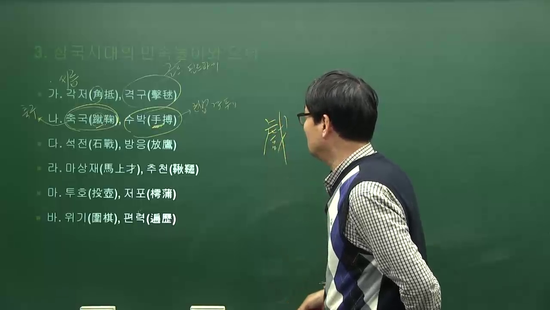 씨름
가. 각저(角抵), 격구(擊毬)
나. 축국(蹴鞠), 수박(手搏)
다. 석전(石戰), 방응(放鷹)
라. 마상재(馬上才), 추천(鞦韆)
마. 투호(投壺), 저포(樗蒲)
바. 위기(圍棋), 편력(遍歷)
戱